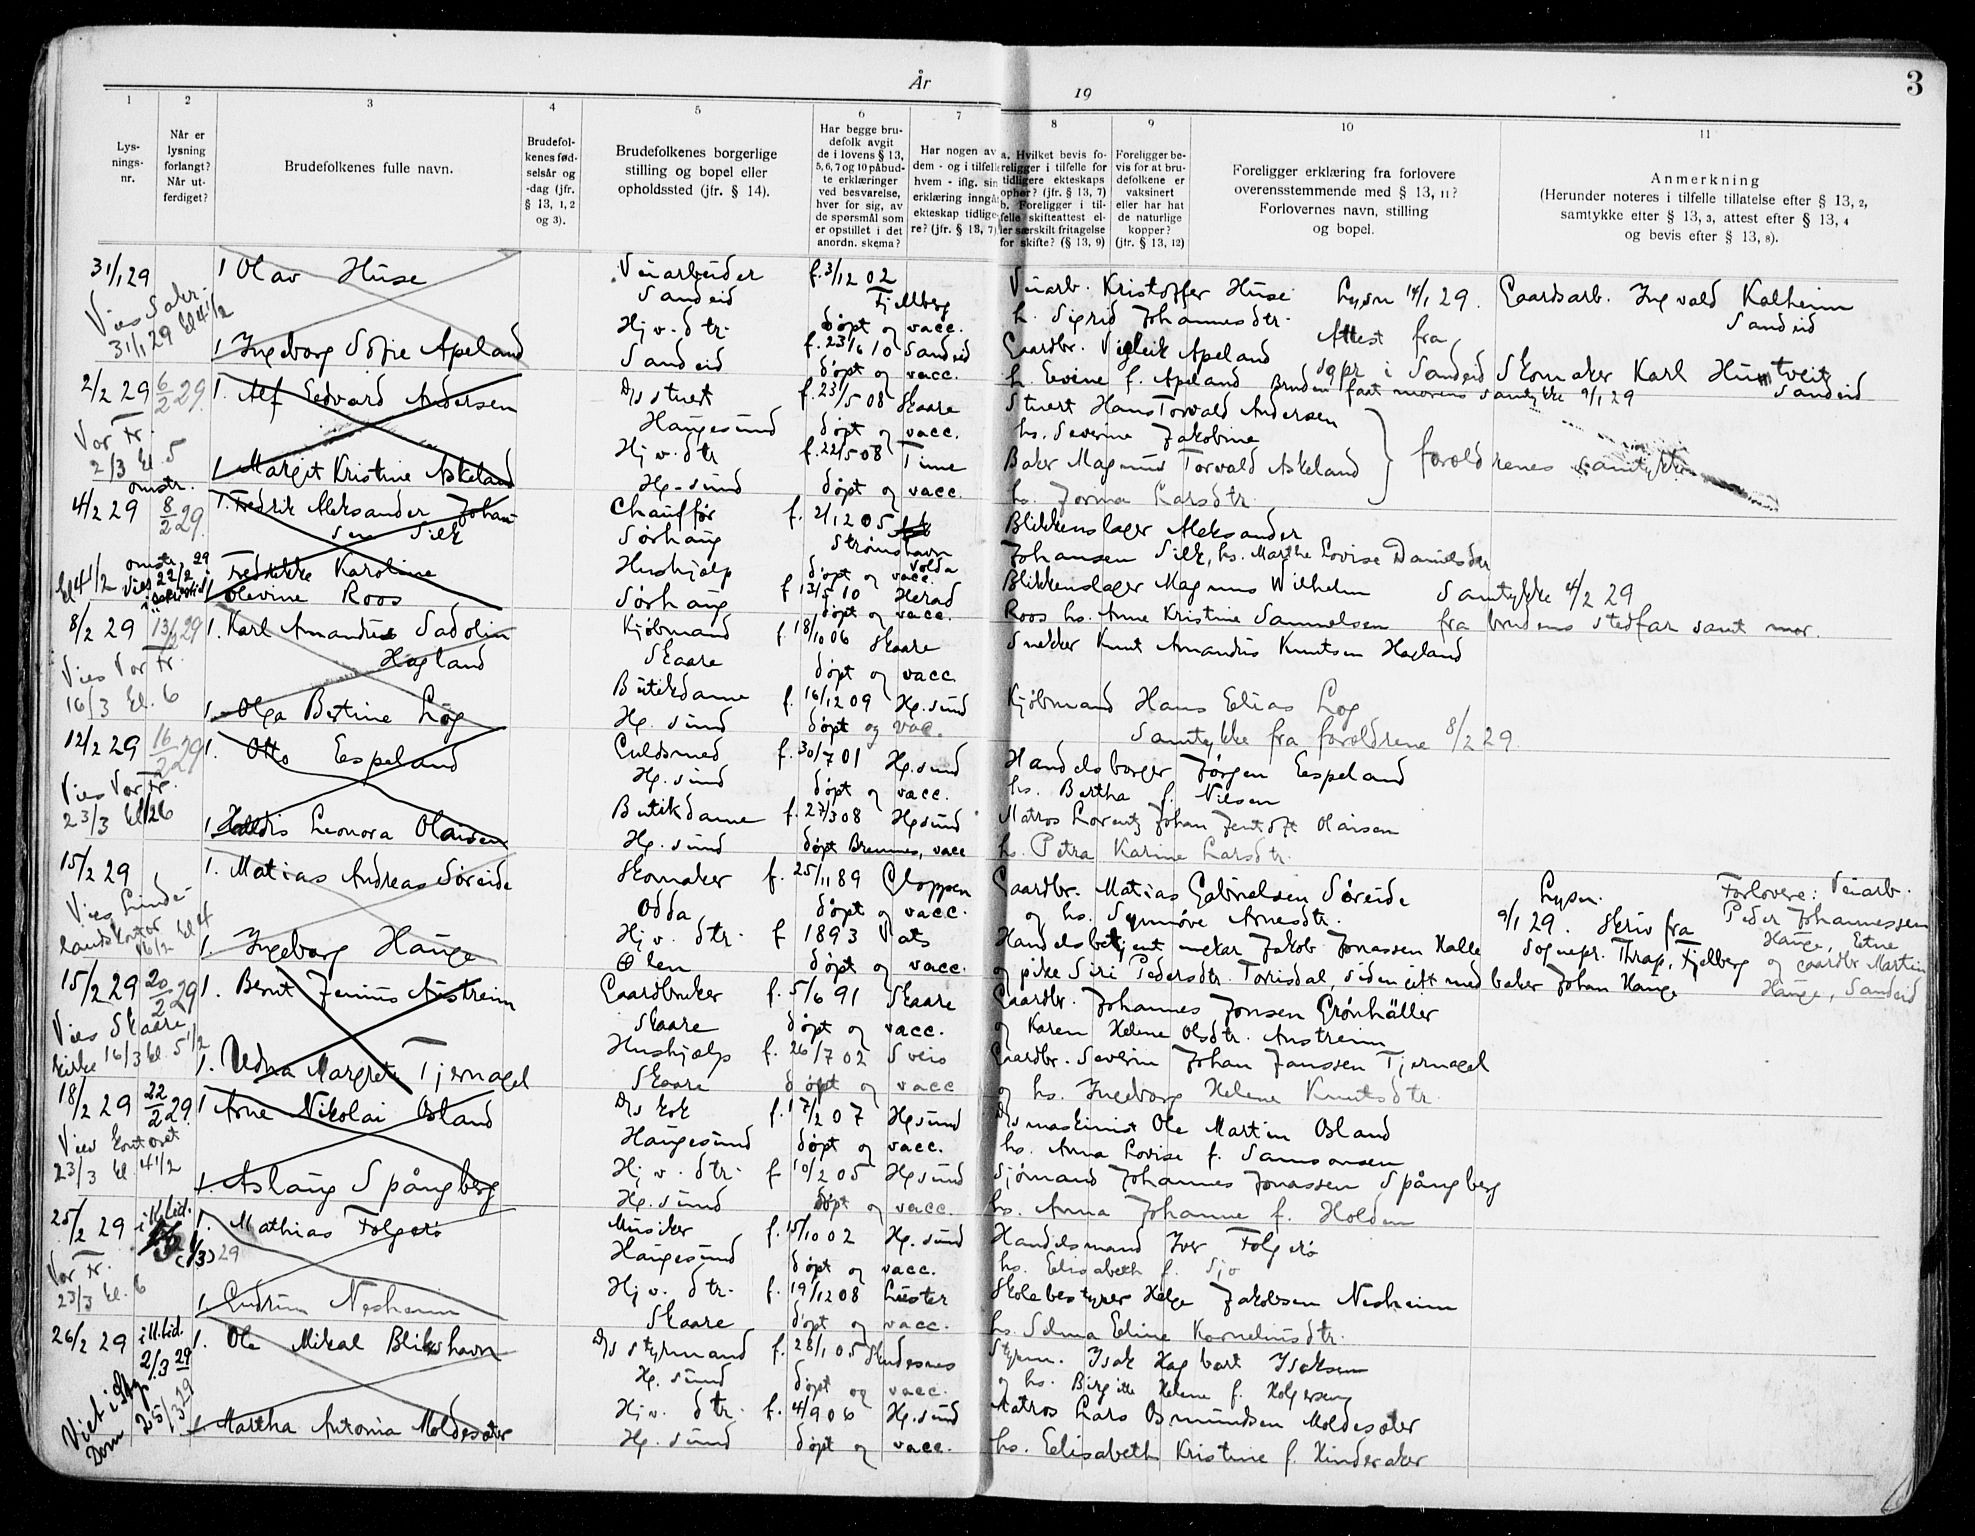 År 19
3
1 2 3 4 5 6 7 8 9 10 11
Lys-
nings-
nr.
Når er
lysning
forlangt?
Når ut-
ferdiget?
Brudefolkenes fulle navn.
Brudefol-
kenes fød-
selsår og
-dag (jfr.
§ 13, 1, 2
og 3).
Brudefolkenes borgerlige
stilling og bopel eller
opholdssted (jfr. § 14).
Har begge bru-
defolk avgit
de i lovens § 13,
5, 6, 7 og 10 påbud-
te erklæringer
ved besvarelse,
hver for sig, av
de spørsmål som
er opstillet i det
anordn. skema?
Har nogen av
dem - og i tilfelle
hvem - iflg. sin
erklæring inngå
ekteskap tidlige-
re? (jfr. § 13, 7)
a. Hvilket bevis fo-
religger i tilfelle for
tidligere ekteskaps
ophør? (jfr. § 13, 7)
b. Foreligger i til-
felle skifteattest el-
ler særskilt fritagelse
for skifte? (§ 13, 9)
Foreligger be-
vis for at bru-
defolkene er
vaksinert
eller har hat
de naturlige
kopper?
(jfr. § 13, 12)
Foreligger erklæring fra forlovere
overensstemmende med § 13, 11?
Forlovernes navn, stilling
og bopel.
Anmerkning
(Herunder noteres i tilfelle tillatelse efter § 13, 2,
samtykke efter § 13, 3, attest efter § 13, 4
og bevis efter § 13, 8).
31/1 29 1 Olav Huse Veiarbeider f. 3/12 02 Veiarb. Kristoffer Huse Lysn 14/1 29. Gaardsarb. Ingvald Kalheim
Vies Sakr. Sandeid Fjellberg h. Sigrid Johannesdtr. Sandeid
31/1 29 kl 4 1/2 Hjv. dtr. døpt og vacc. Attest fra
1 Ingeborg Sofie Apeland Sandeid f. 23/6 10 Sandeid Gaardbr. Vigleik Apeland sgpr i Sandeid Skomaker Karl Hustveit
døpt og vacc. h. Evine f. Apeland Bruden faat morens samtykke 9/1 29 Sandeid
2/2 29 6/2 29 1. Alf Edvard Andersen D/s stuert f. 23/5 08 Skaare Stuert Hans Torvald Andersen
Vor Fr. Haugesund døpt og vacc. hs. Severine Jakobine
2/3 kl. 5 1 Margit Kristine Askeland Hjv. dtr f. 22/5 08 Time Baker Magnus Torvald Askeland forældrenes samtykke
Hg-sund døpt og vacc. hs. Jorina Larsdtr.
omstr.
4/2 29 8/2 29 1. Fredrik Aleksander Johan- Chauffør f. 2/12 05 Blikkenslager Aleksander
sen Silk Sørhaug Strømshavn Johansen Silk, hs. Marthe Lovise Danielsdtr
omstr. Fredrikke Karoline Hushjælp Volda døpt og vacc. Blikkenslager Magnus Wilhelm Samtykke 4/2 29
kl 4 1/2 Vies 22/2 29 1 Olevine Roos Sørhaug f. 13/5 10 Herad Roos hs. Anne Kristine Samuelsen fra brudens stedfar samt mor.
døpt og vacc.
8/2 29 13/2 29 1. Karl Amandus Sadolin Kjøbmand f. 18/10 06 Skaare Snekker Knut Amandus Knutsen Hagland
Vies Vor Fr. Hagland Skaare døpt og vacc
16/3 kl. 6 1. Olga Bertine Log Butikdame f. 16/12 09 Hg.sund Kjøbmand Hans Elias Log
Hg. sund døpt og vac. Samtykke fra forældrene 8/2 29
12/2 29 16/2 29 1. Otto Espeland Guldsmed f. 30/7 01 Hg.sund Handelsborger Jørgen Espeland
Vies Vor Fr. Hg. sund døpt og vacc. hs. Bertha f. Nilsen
23/3 kl 1 Haldis Leonora Olaisen Butikdame f. 27/3 08 Hgsund Matros Lorentz Johan Jentoft Olaisen
Hg. sund døpt Bremnes, vacc hs. Petra Karine Larsdtr.
15/2 29 1. Matias Andreas Søreide Skomaker f. 25/11 89 Gloppen Gaardbr. Matias Gabrielsen Søreide Lysn. Forlovere: Veiarb.
Vies Lunde- Odda døpt og vacc. og hs. Synnøve Arnesdtr. 9/1 29. Skriv fra Peder Johannessen
landskontor 16/2 kl 4 1. Ingeborg Hauge Hjv. dtr. f 1893 Vats Handelsbetjent Jakob Jonassen Halle Sognepr. Thrap, Fjelberg Hauge, Etne
Ølen døpt og vacc. og pike Siri Pedersdtr. Torrisdal, siden gift med baker Johan Hauge og Gaardbr Martin
Hauge, Sandeid
15/2 29 20/2 29 1. Bernt Jenius Austreim Gaardbruker f. 5/6 91 Skaare Gaardbr. Johannes Jonsen Grønhäller
Vies Skaare Skaare døpt og vacc. og Karen Helene Olsdtr. Austreim
kirke 16/3 kl. 5 1/2 1. Edna Margrete Tjernagel Hushjælp f. 26/7 02 Sveio Gaardbr. Severin Johan Janssen Tjernagel
Skaare døpt og vacc og hs. Ingeborg Helene Knutsdtr.
18/2 29 22/2 29. 1 Arne Nikolai Øsland D/s kok f. 17/2 07 Hgsund D/s maskinist Ole Martin Øsland
Vies kontoret Haugesund døpt og vacc. hs. Anna Lovise f. Samsonsen
23/3 kl. 4 1/2 1. Aslaug Spångberg Hjv. dtr. f 10/2 05 Hgsund Sjømand Johannes Jonassen Spångberg
Hg. sund døpt og vacc. hs. Anna Johanne f. Holden
25/2 29 i kl.tid. 1. Mathias Folgerø Musiker f. 15/10 02 Hg. sund Handelsmand Iver Folgerø
(1/3) 29 Haugesund døpt og vacc. hs. Elisabeth f. Sjo
Vor Fr.
23/3 kl. 6 1. Gudrun Nesheim Hjv. dtr. f. 19/12 08 Luster Skolebestyrer Helge Jakobsen Nesheim
Skaare døpt og vacc. hs. Selma Eline Kornelinsdtr.
26/2 29 i kl.tid. 1. Ole Mikal Blikshavn D/s styrmand f. 28/1 05 Skudesnes Styrm. Isak Hagbart Isaksen
2/3 29 Hg. sund døpt og vacc. og hs. Birgitte Helene f. Holgersen
Viet i Stvg. 1 Martha Antonia Moldesæter Hjv. dtr. f. 4/9 06 Hg.sund Matros Lars Osmundsen Moldesæter
Dom 25/3 29 Hg. sund døpt og vacc. hs. Elisabeth Kristine f. Hinderaker